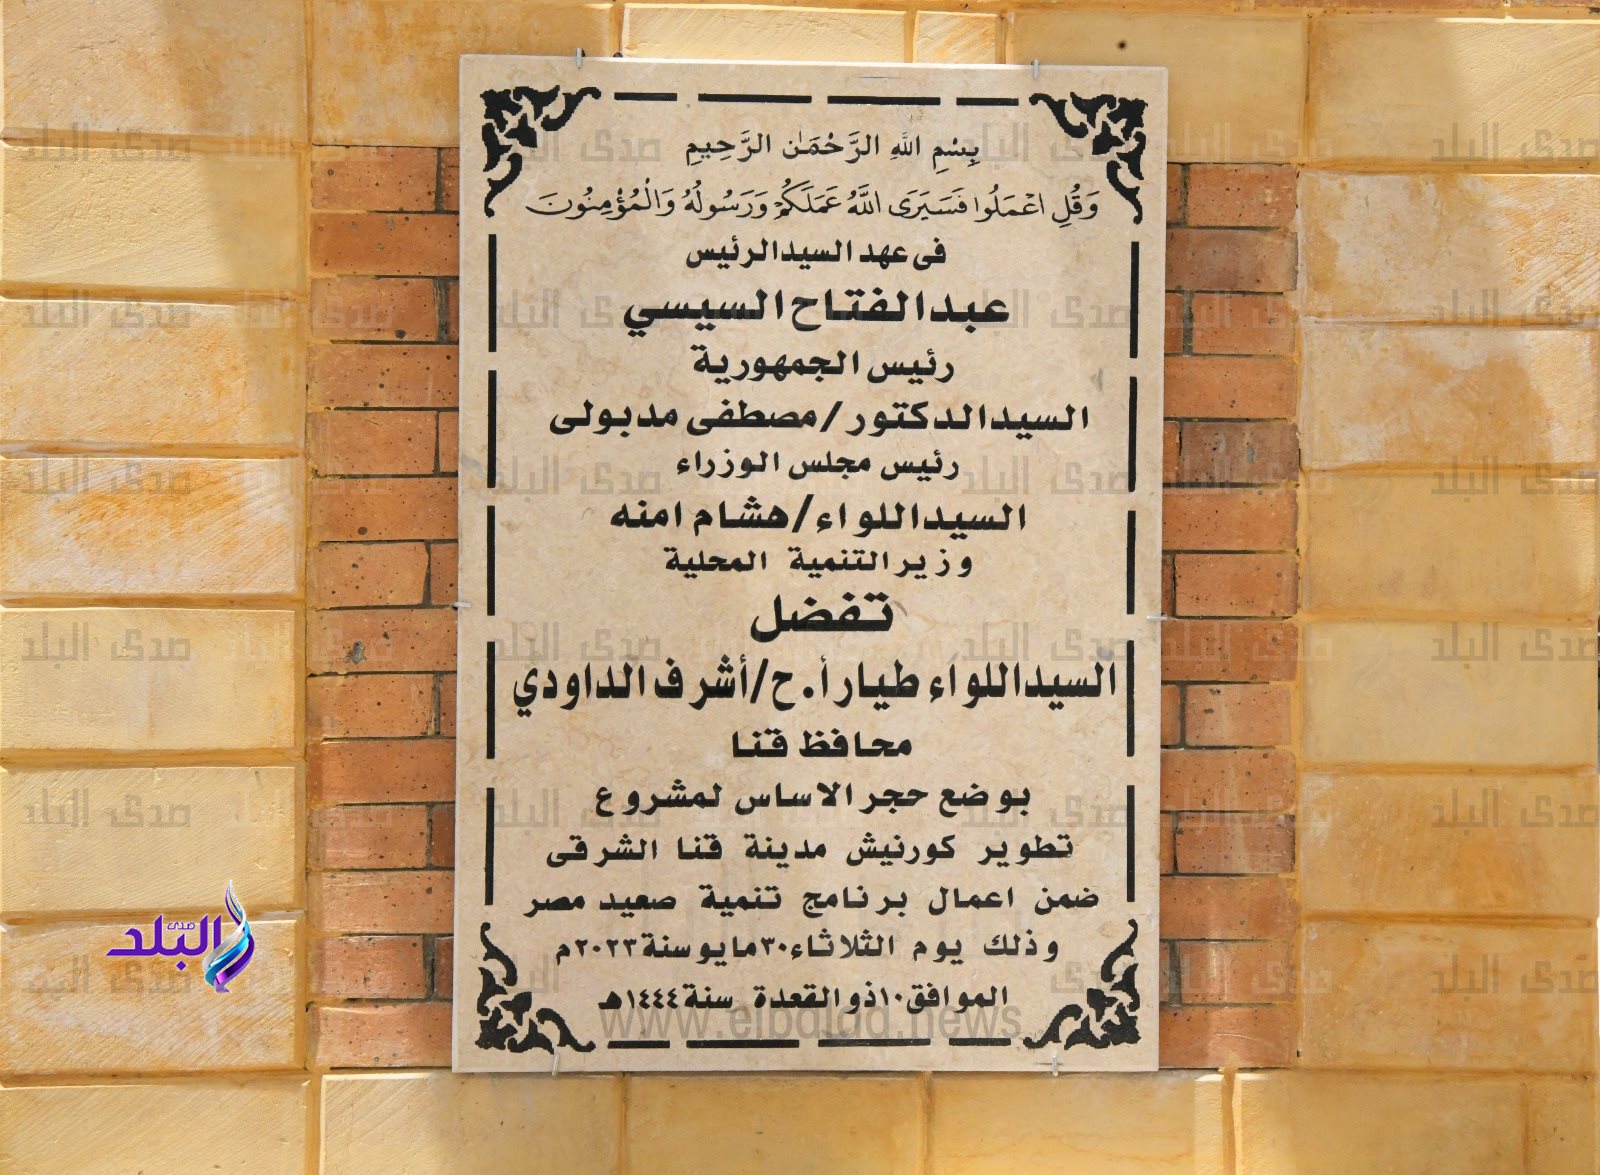 بِسْمِ اللَّهِ الرَّحْمَٰنِ الرَّحِيمِ
وَقُلِ اعْمَلُوا فَسَيَرَى اللَّهُ عَمَلَكُمْ وَرَسُولُهُ وَالْمُؤْمِنُونَ
فى عهد السيد الرئيس
عبد الفتاح السيسي
رئيس الجمهورية
السيد الدكتور / مصطفى مدبولى
رئيس مجلس الوزراء
السيد اللواء / هشام امنه
وزير التنمية المحلية
تفضل
السيد اللواء طيار أ.ح / أشرف الداودي
محافظ قنا
بوضع حجر الاساس لمشروع
تطوير كورنيش مدينة قنا الشرقى
ضمن اعمال برنامج تنمية صعيد مصر
وذلك يوم الثلاثاء ٣٠ مايو سنة ٢٠٢٣م
الموافق ١٠ ذو القعدة سنة ١٤٤٤هـ
www.elbalad.news
صدى البلد